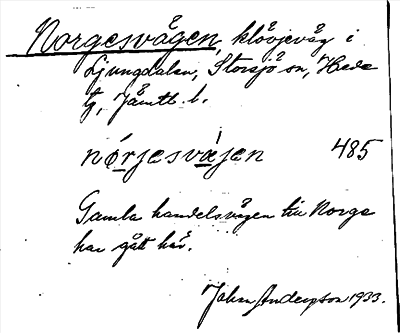 Norgesvägen, klövjeväg i
Ljungdalen, Storsjö sn, Hede
tg, Jämtl. l.
nórjesvä̀jen 485
Gamla handelsvägen till Norge
har gått här.
John Anderpson 1933.